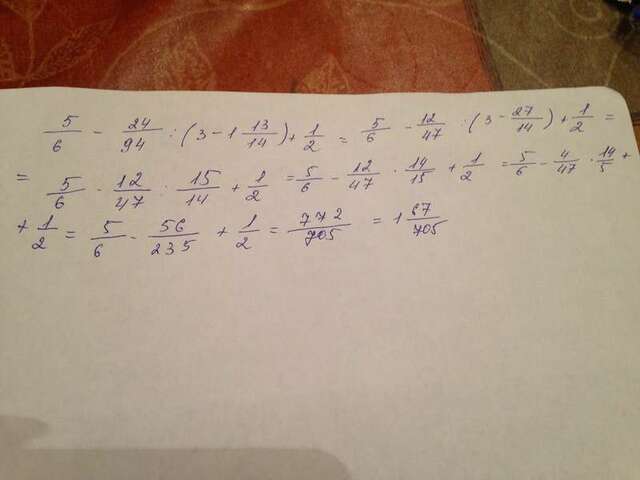 5/6 - 24/94 : (3 - 1 13/14) + 1/2 = 5/6 - 12/47 : (3 - 27/14) + 1/2 =
= 5/6 - 12/47 : 15/14 + 1/2 = 5/6 - 12/47 · 14/15 + 1/2 = 5/6 - 4/47 · 14/5 +
+ 1/2 = 5/6 - 56/235 + 1/2 = 772/705 = 1 67/705